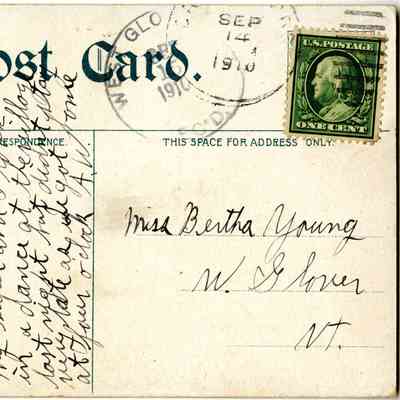 ost Card.
WEST GLO
SEP
14
1910
SEP
1910
REC'D.
U.S. POSTAGE
ONE CENT
RESPONDENCE.
THIS SPACE FOR ADDRESS ONLY.
Miss Bertha Young
W. Glover
Vt.
in a dance at the village
last night but didn't stay
very late as we got home
at four o'clock A.M.